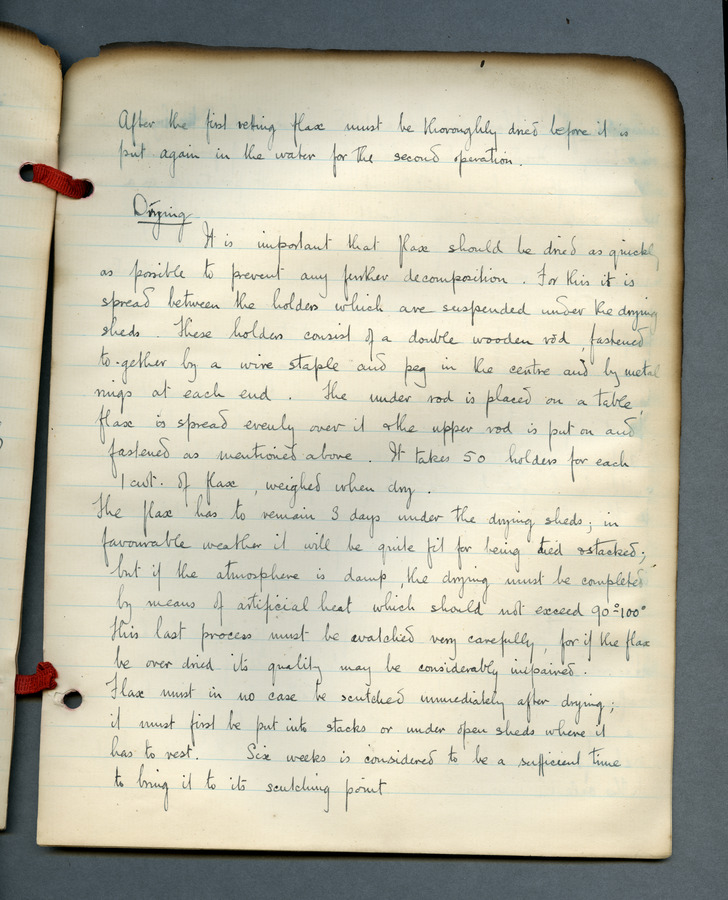 After the first retting flax must be thoroughly dried before it is
put again in the water for the second operation.
Drying
It is important that flax should be dried as quickly
as possible to prevent any further decomposition. For this it is
spread between the holders which are suspended under the drying
sheds. These holders consist of a double wooden rod, fastened
to-gether by a wire staple and peg in the centre and by metal
rings at each end. The under rod is placed on a table,
flax is spread evenly over it & the upper rod is put on and
fastened as mentioned above. It takes 50 holders for each
1 cwt. of flax, weighed when dry.
The flax has to remain 3 days under the drying sheds; in
favourable weather it will be quite fit for being tied & stacked;
but if the atmosphere is damp, the drying must be completed
by means of artificial heat which should not exceed 90°-100°
This last process must be watched very carefully, for if the flax
be over dried its quality may be considerably impaired.
Flax must in no case be scutched immediately after drying;
it must first be put into stacks or under open sheds where it
has to rest. Six weeks is considered to be a sufficient time
to bring it to its scutching point